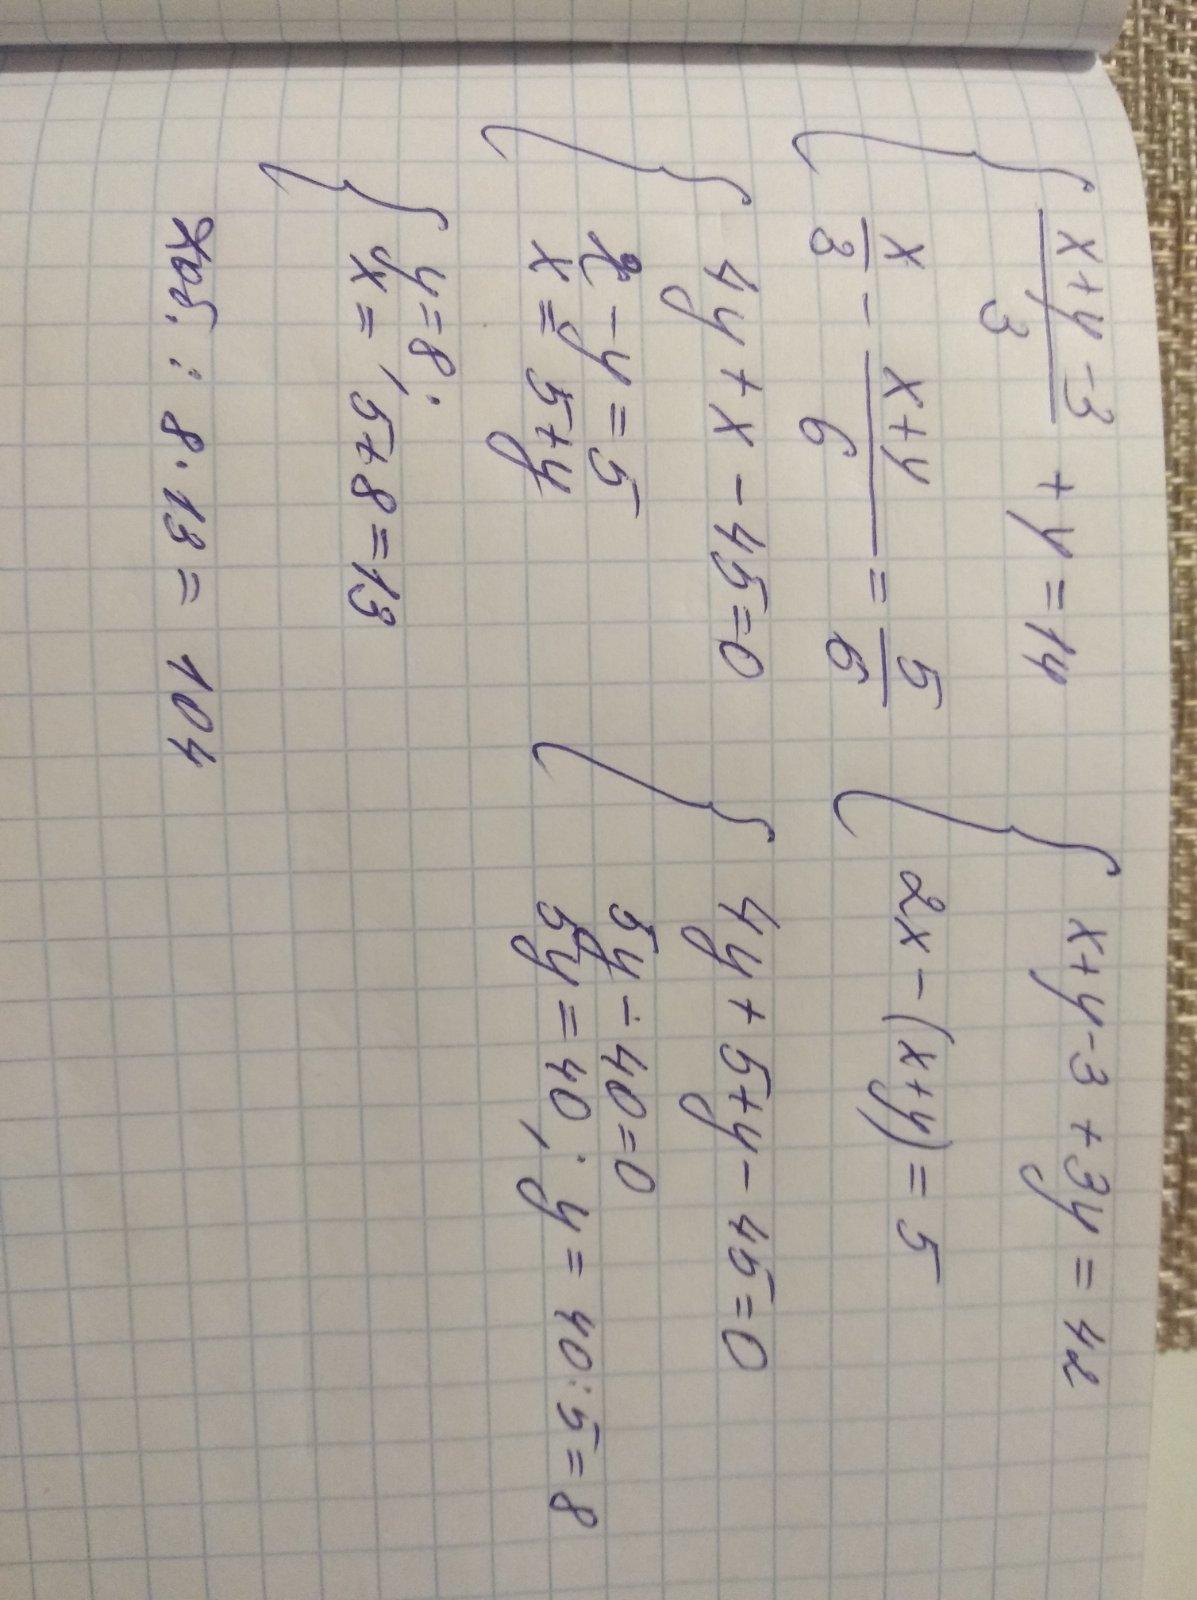 { (x+y-3)/3 + y = 14
x/3 - (x+y)/6 = 5/6
{ x+y-3+3y = 42
2x-(x+y) = 5
{ 4y+x-45=0
x-y=5
x=5+y
{ 4y+5+y-45=0
5y-40=0
5y=40; y=40:5=8
{ y=8;
x=5+8=13
: 8·13= 104